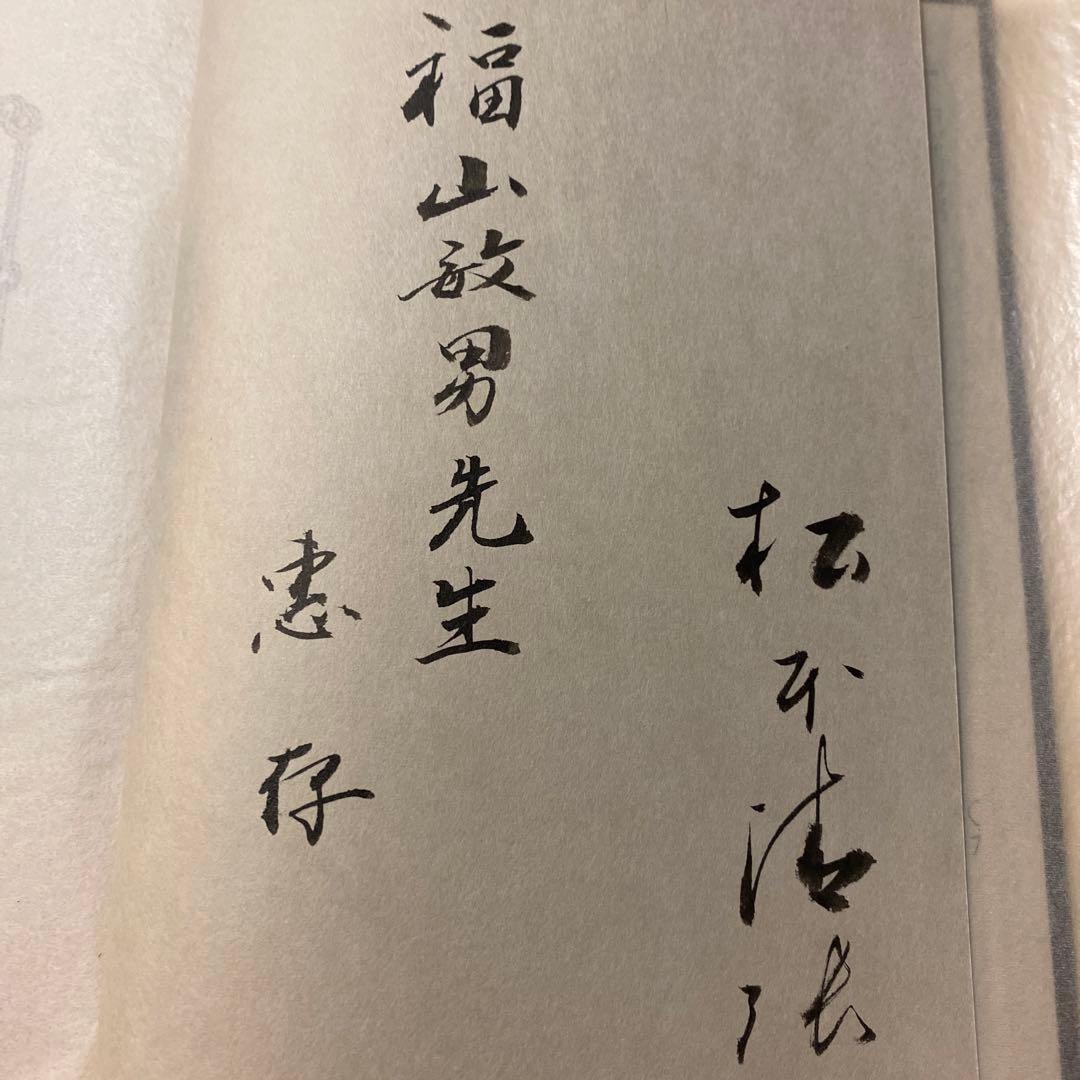 松本清張
福山敏男先生
恵存